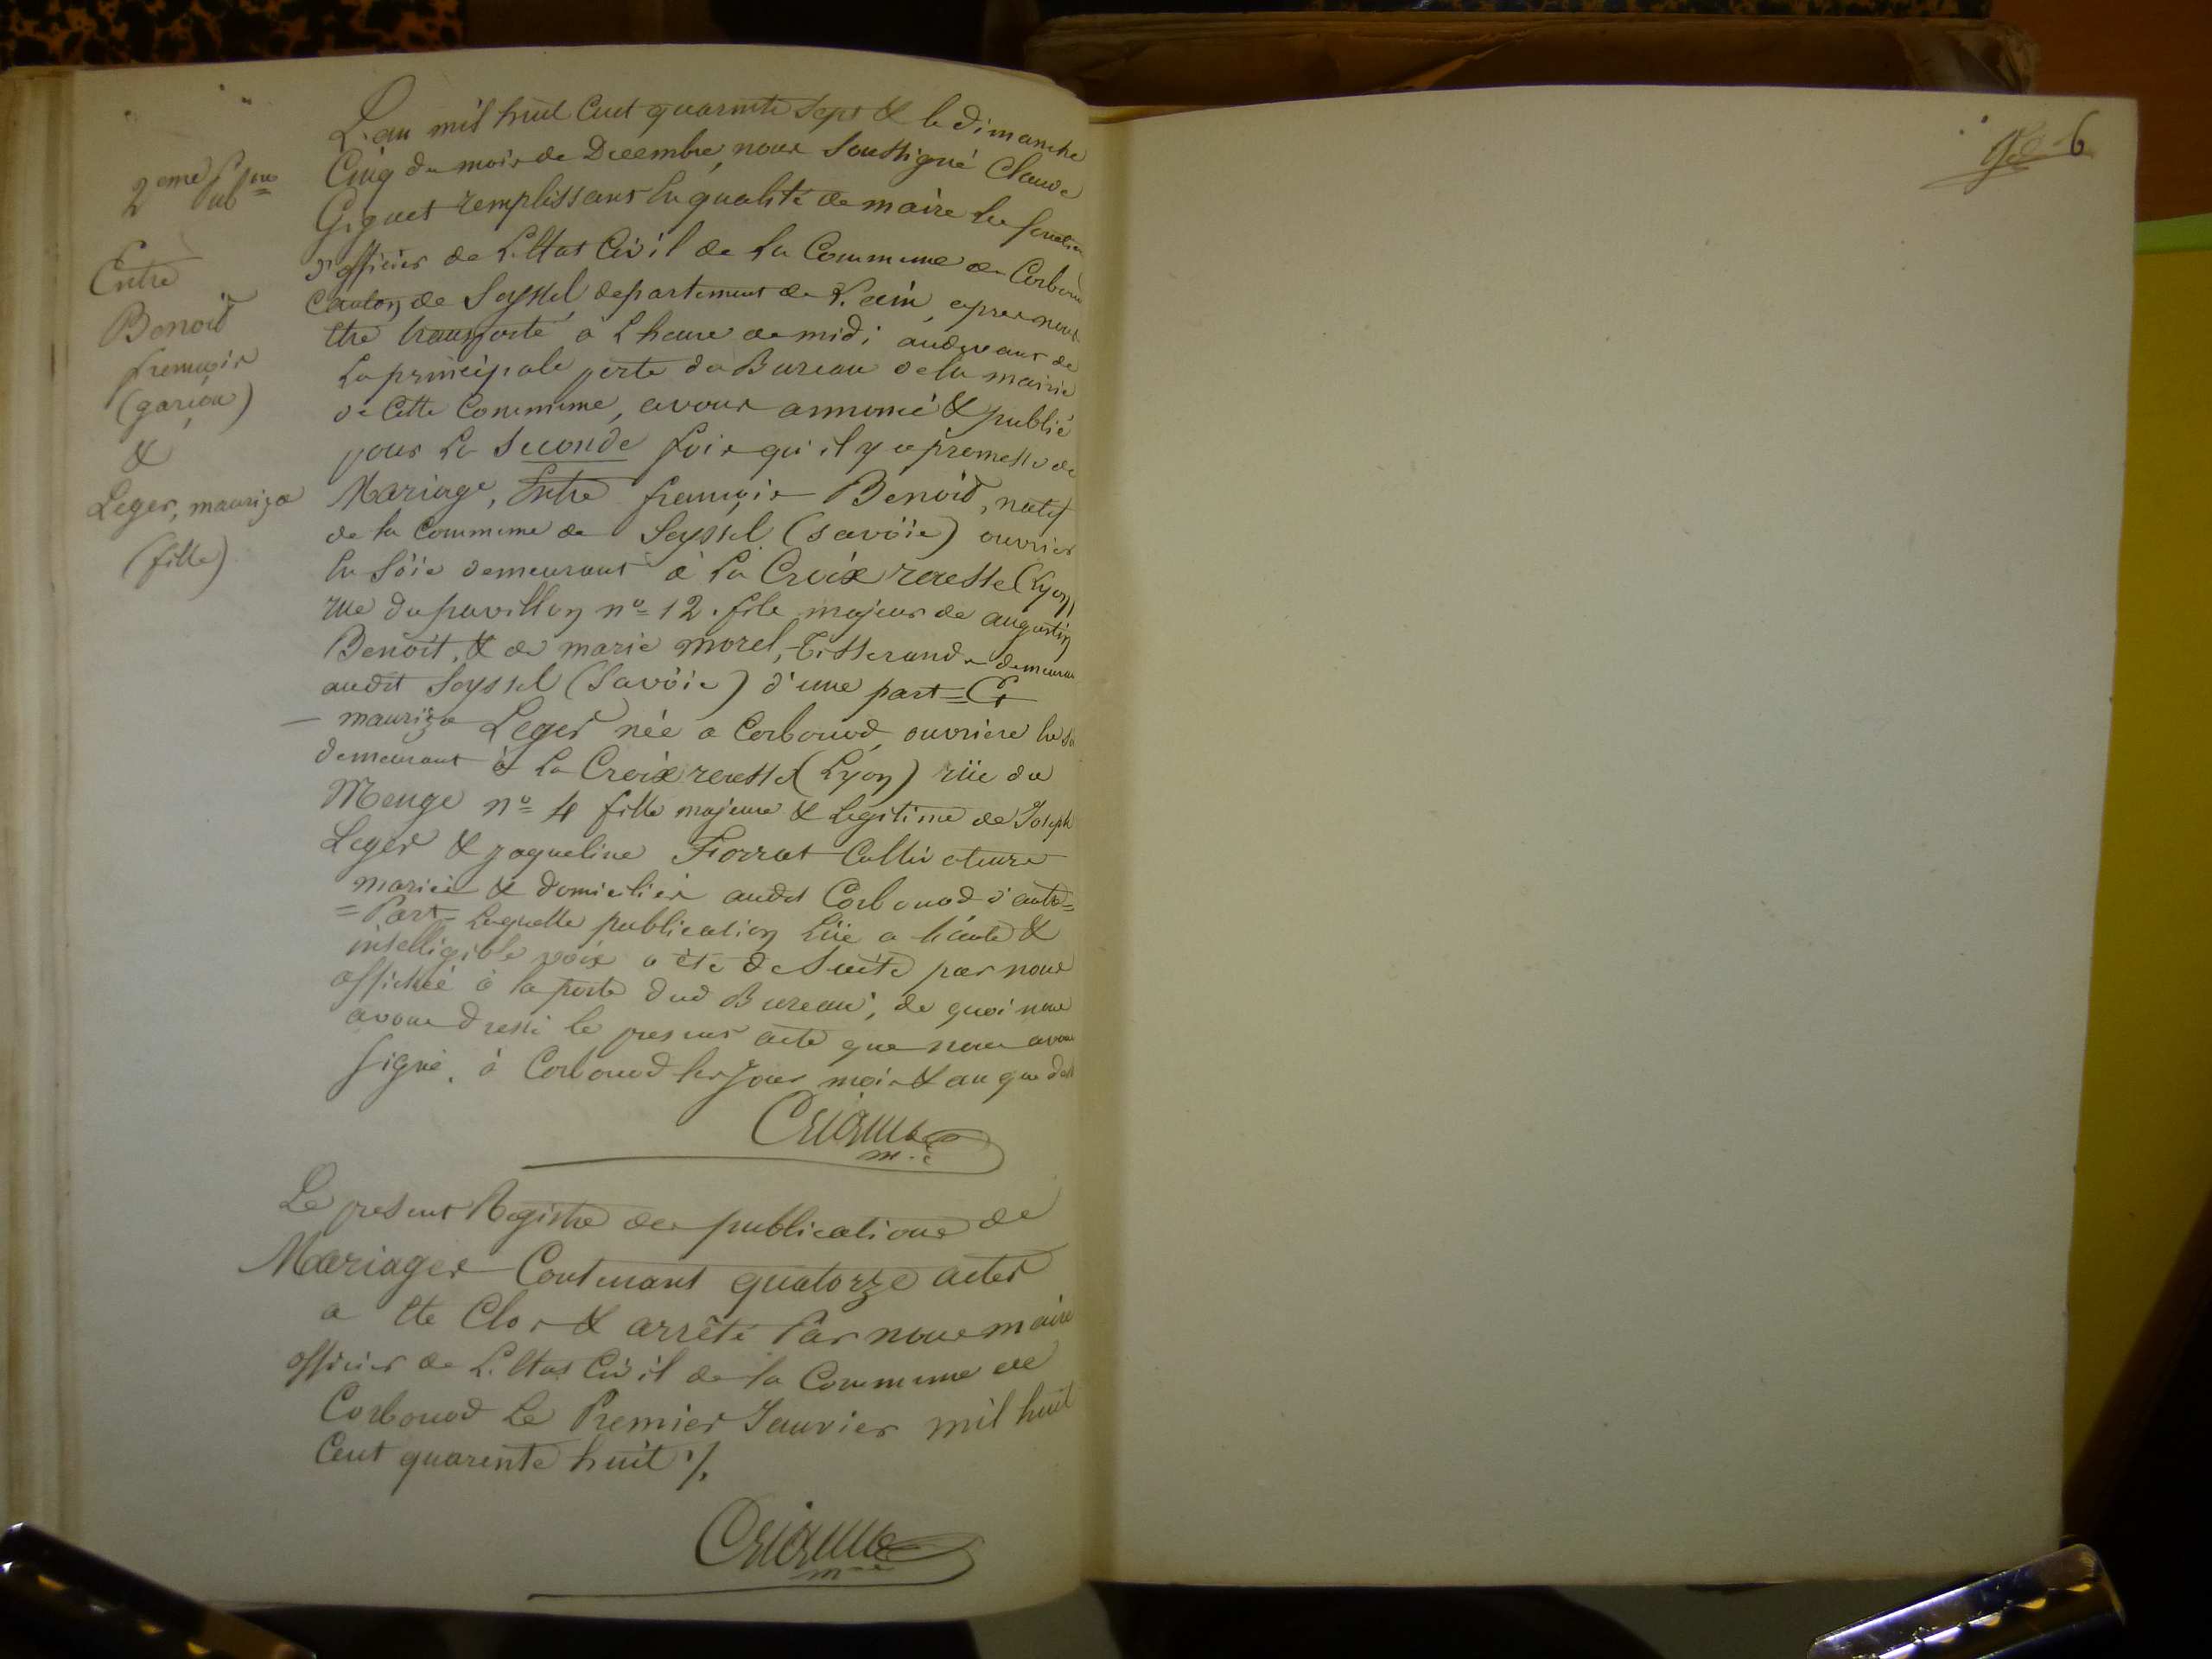 2eme Pub^on
Entre
Benoid
françois
(garçon)
&
Leger, mauriza
(fille)
L'an mil huit Cent quarante Sept & le dimanche
Cinq du mois de Decembre, nous Soussigné Claude
Giguet remplissant en qualité de maire les fonction
d'officier de L'Etat Civil de la Commune de Corbonod
Canton de Seyssel, departement de L'ain, apres nous
être transporté à L'heure de midi audevant de
La principale porte du Bureau de la mairie
de Cette Commune, avons annoncé & publié
pour La Seconde fois qu'il y a promesse de
Mariage, Entre françois Benoid, natif
de la Commune de Seyssel (Savoie) ouvrier
en Soie demeurant à La Croix rousse (Lyon)
rue du pavillon n° 12. fils majeur de augustin
Benoit, & de marie morel, Tisserands demeurant
audit Seyssel (Savoie) d'une part = Et
— mauriza Leger née a Corbonod, ouvriere en So
demeurant à La Croix rousse (Lyon) rüe du
Menge n° 4 fille majeure & Legitime de Joseph
Leger & jaqueline Forrat Cultivateurs
mariés & domiciliés audit Corbonod d'autre=
=Part= Laquelle publication Lüe a haute &
intelligible voix a été de Suite par nous
affichée à la porte dud Bureau, de quoi nous
avons dressé le present acte que nous avons
Signé, à Corbonod les Jour mois & an que dess
m.e
Le present Registre des publications de
Mariages Contenant quatorze actes
a été Clos & arrêté Par nous maire
officier de L'Etat Civil de la Commune de
Corbonod Le Premier Janvier mil huit
Cent quarente huit ·/.
m-e
6